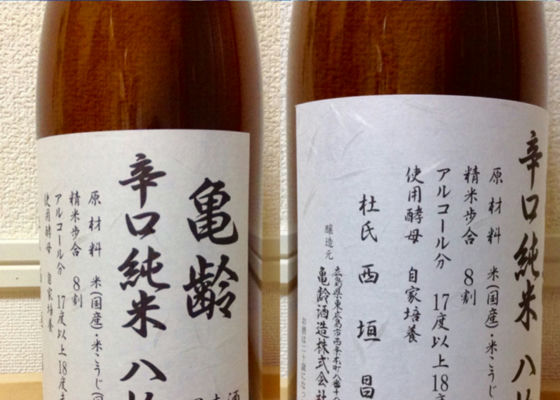 亀齢
辛口純米 八
原材料 米(国産)・米こうじ(国
精米歩合 8割
アルコール分 17度以上18度
使用酵母 自家培養
辛口純米
原材料 米(国産)・米
精米歩合 8割
アルコール分 17度以上18
使用酵母 自家培養
杜氏 西垣昌
醸造元
広島県東広島市西条本町八番十
亀齢酒造株式会社
お酒は二十歳になっ